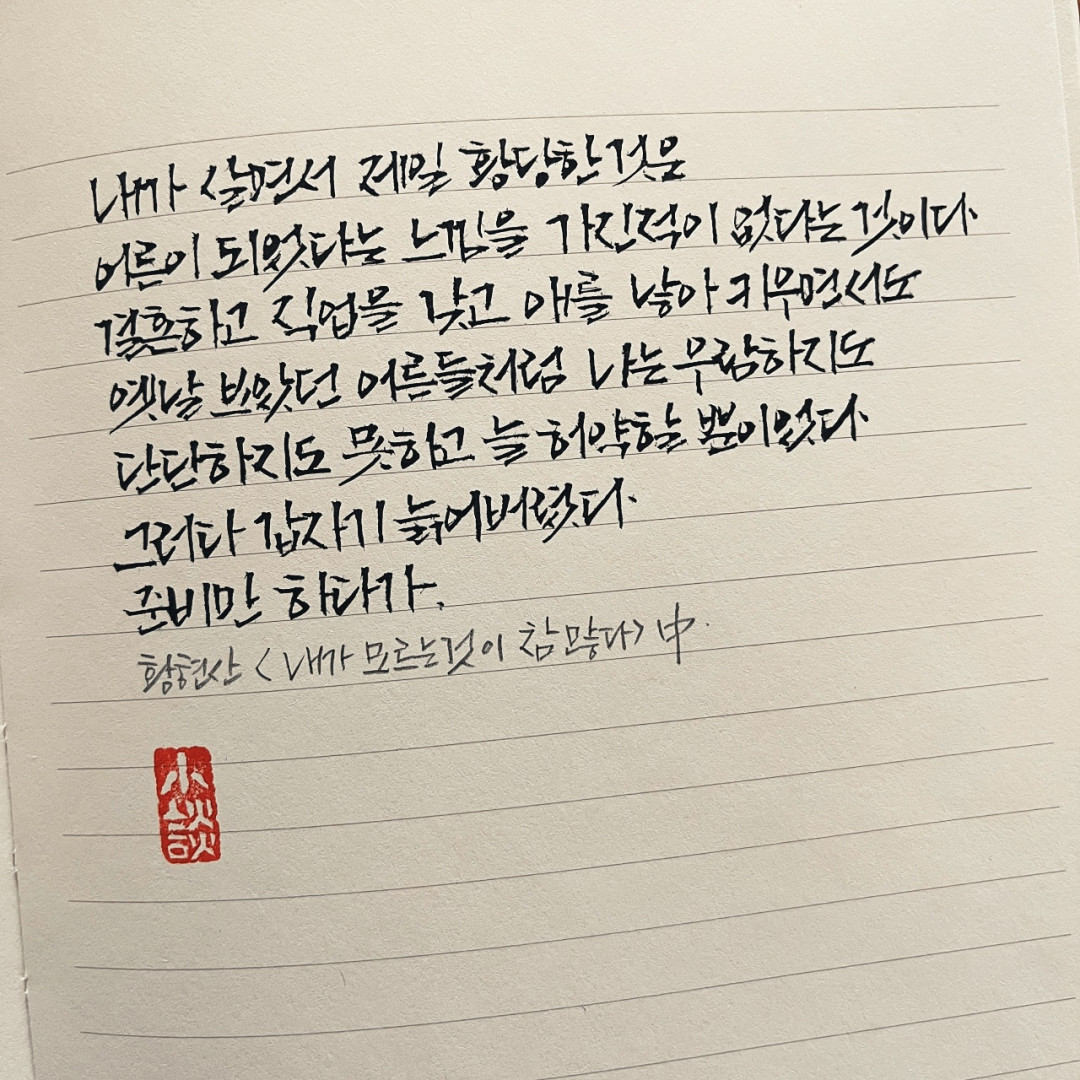 내가 살면서 제일 황당한것은
어른이 되었다는 느낌을 가진적이 없다는것이다.
결혼하고 직업을 갖고 애를 낳아 키우면서도
옛날 보았던 어른들처럼 나는 우람하지도
단단하지도 못하고 늘 허약할 뿐이었다.
그러다 갑자기 늙어버렸다.
준비만 하다가.
황현산 <내가 모르는것이 참 많다> 中.
小談